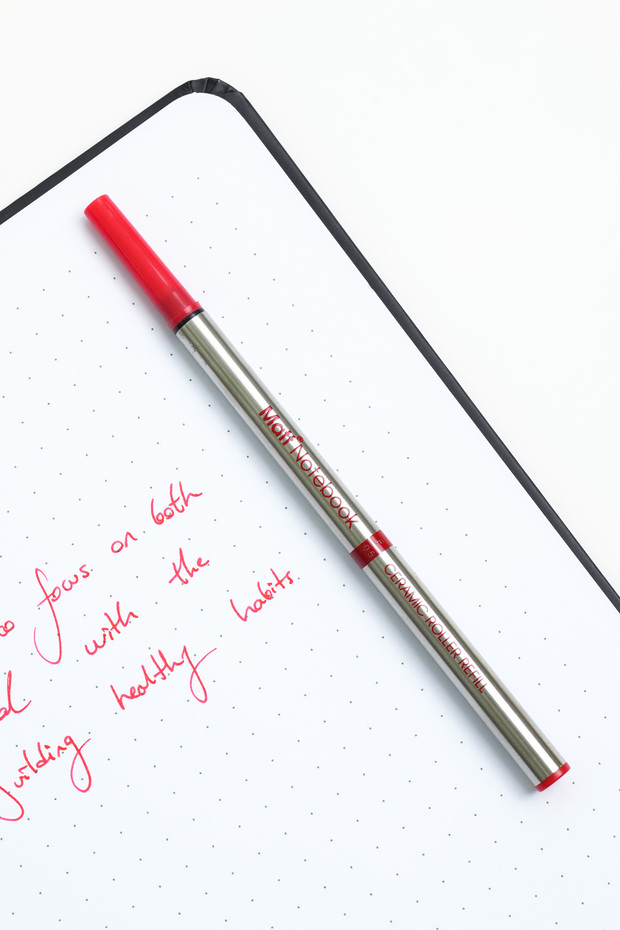 focus on both
with the
building healthy habits
Notebook
0.5
CERAMIC ROLLER REFILL